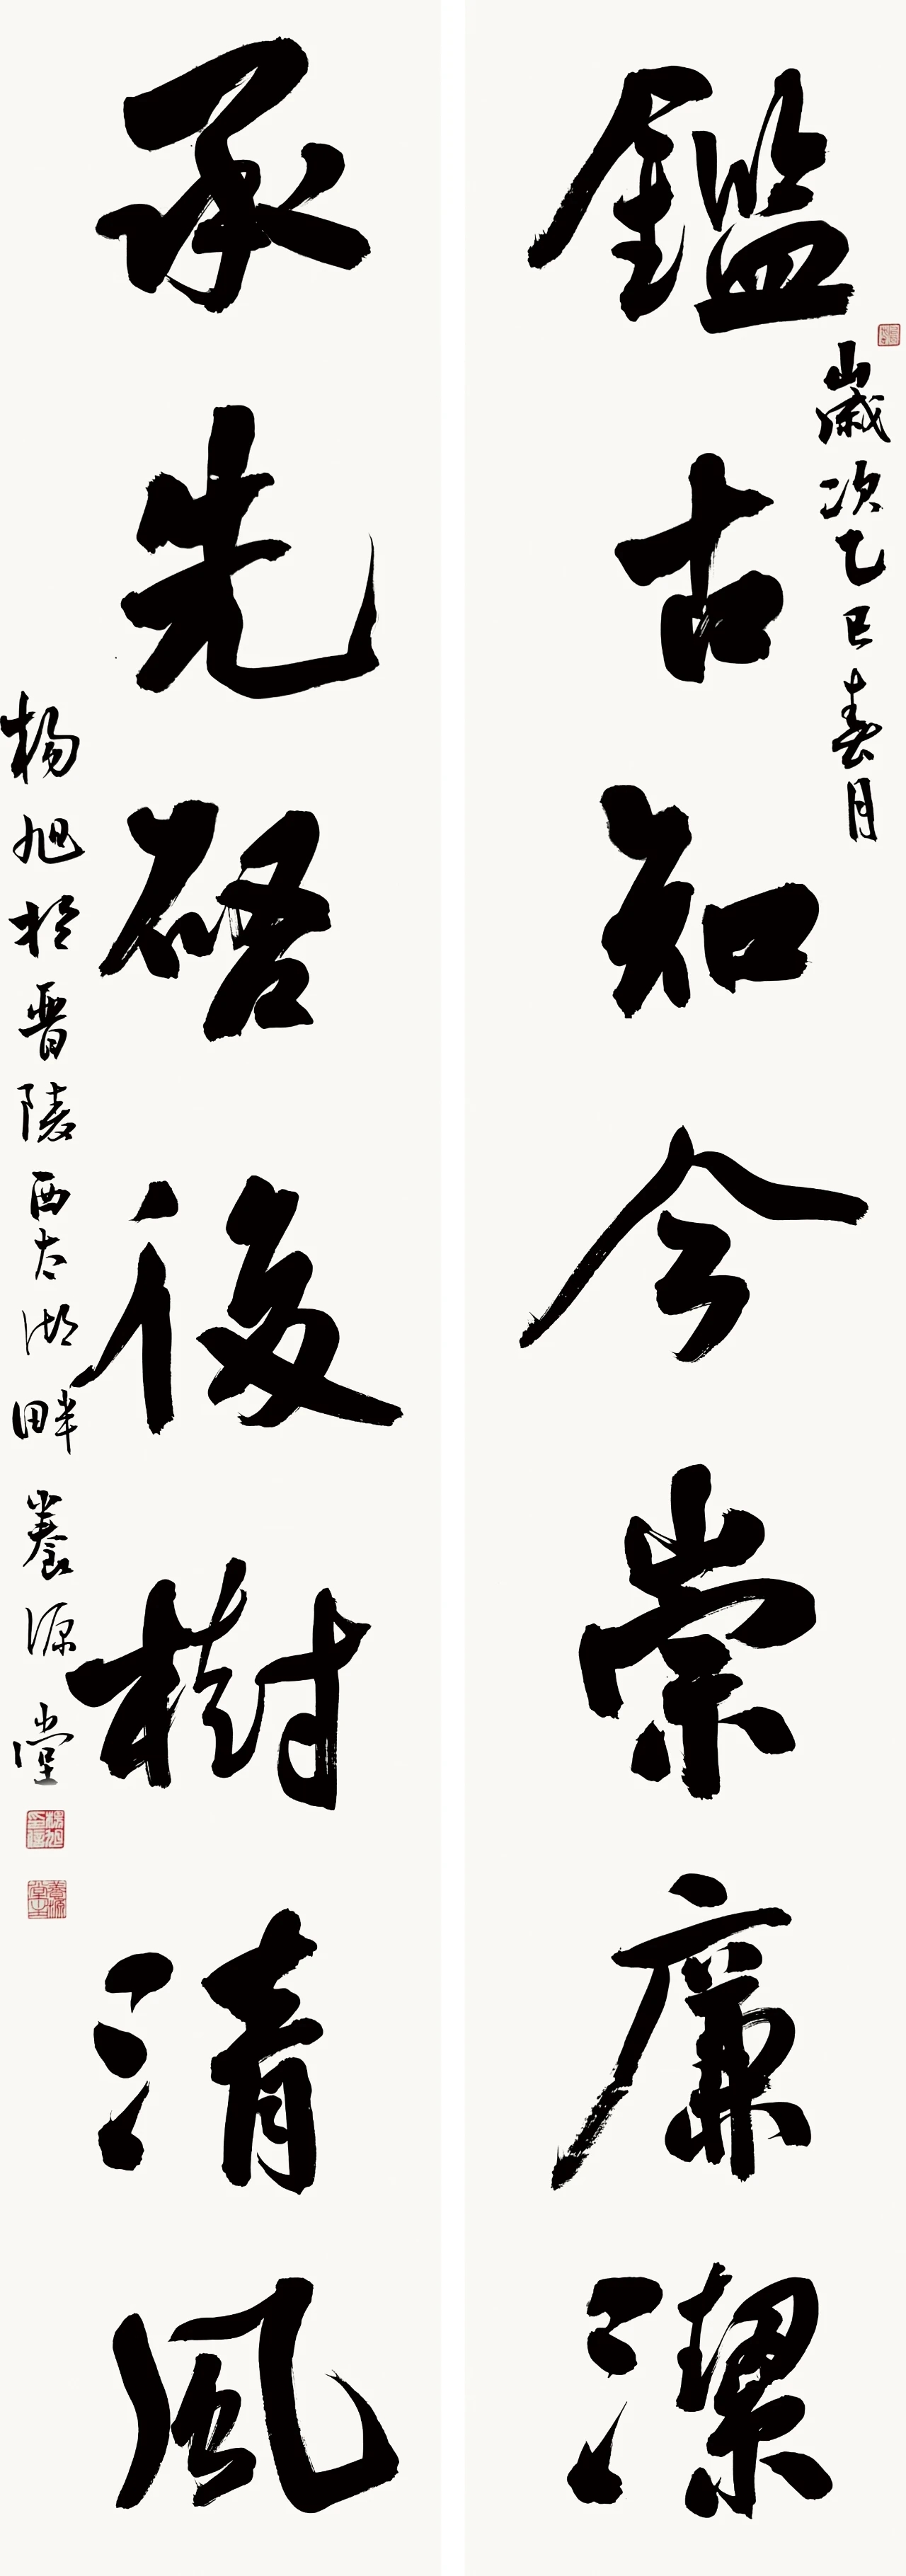 鑑古知今崇廉潔
歲次乙巳春月
承先啓後樹清風
楊旭於晋陵西太湖畔養源堂
楊旭
養源堂主